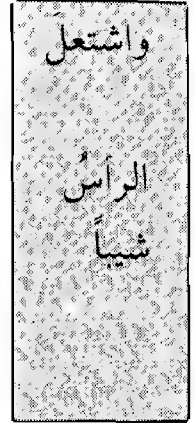 واشتعلَ
الرأسُ
شيباً